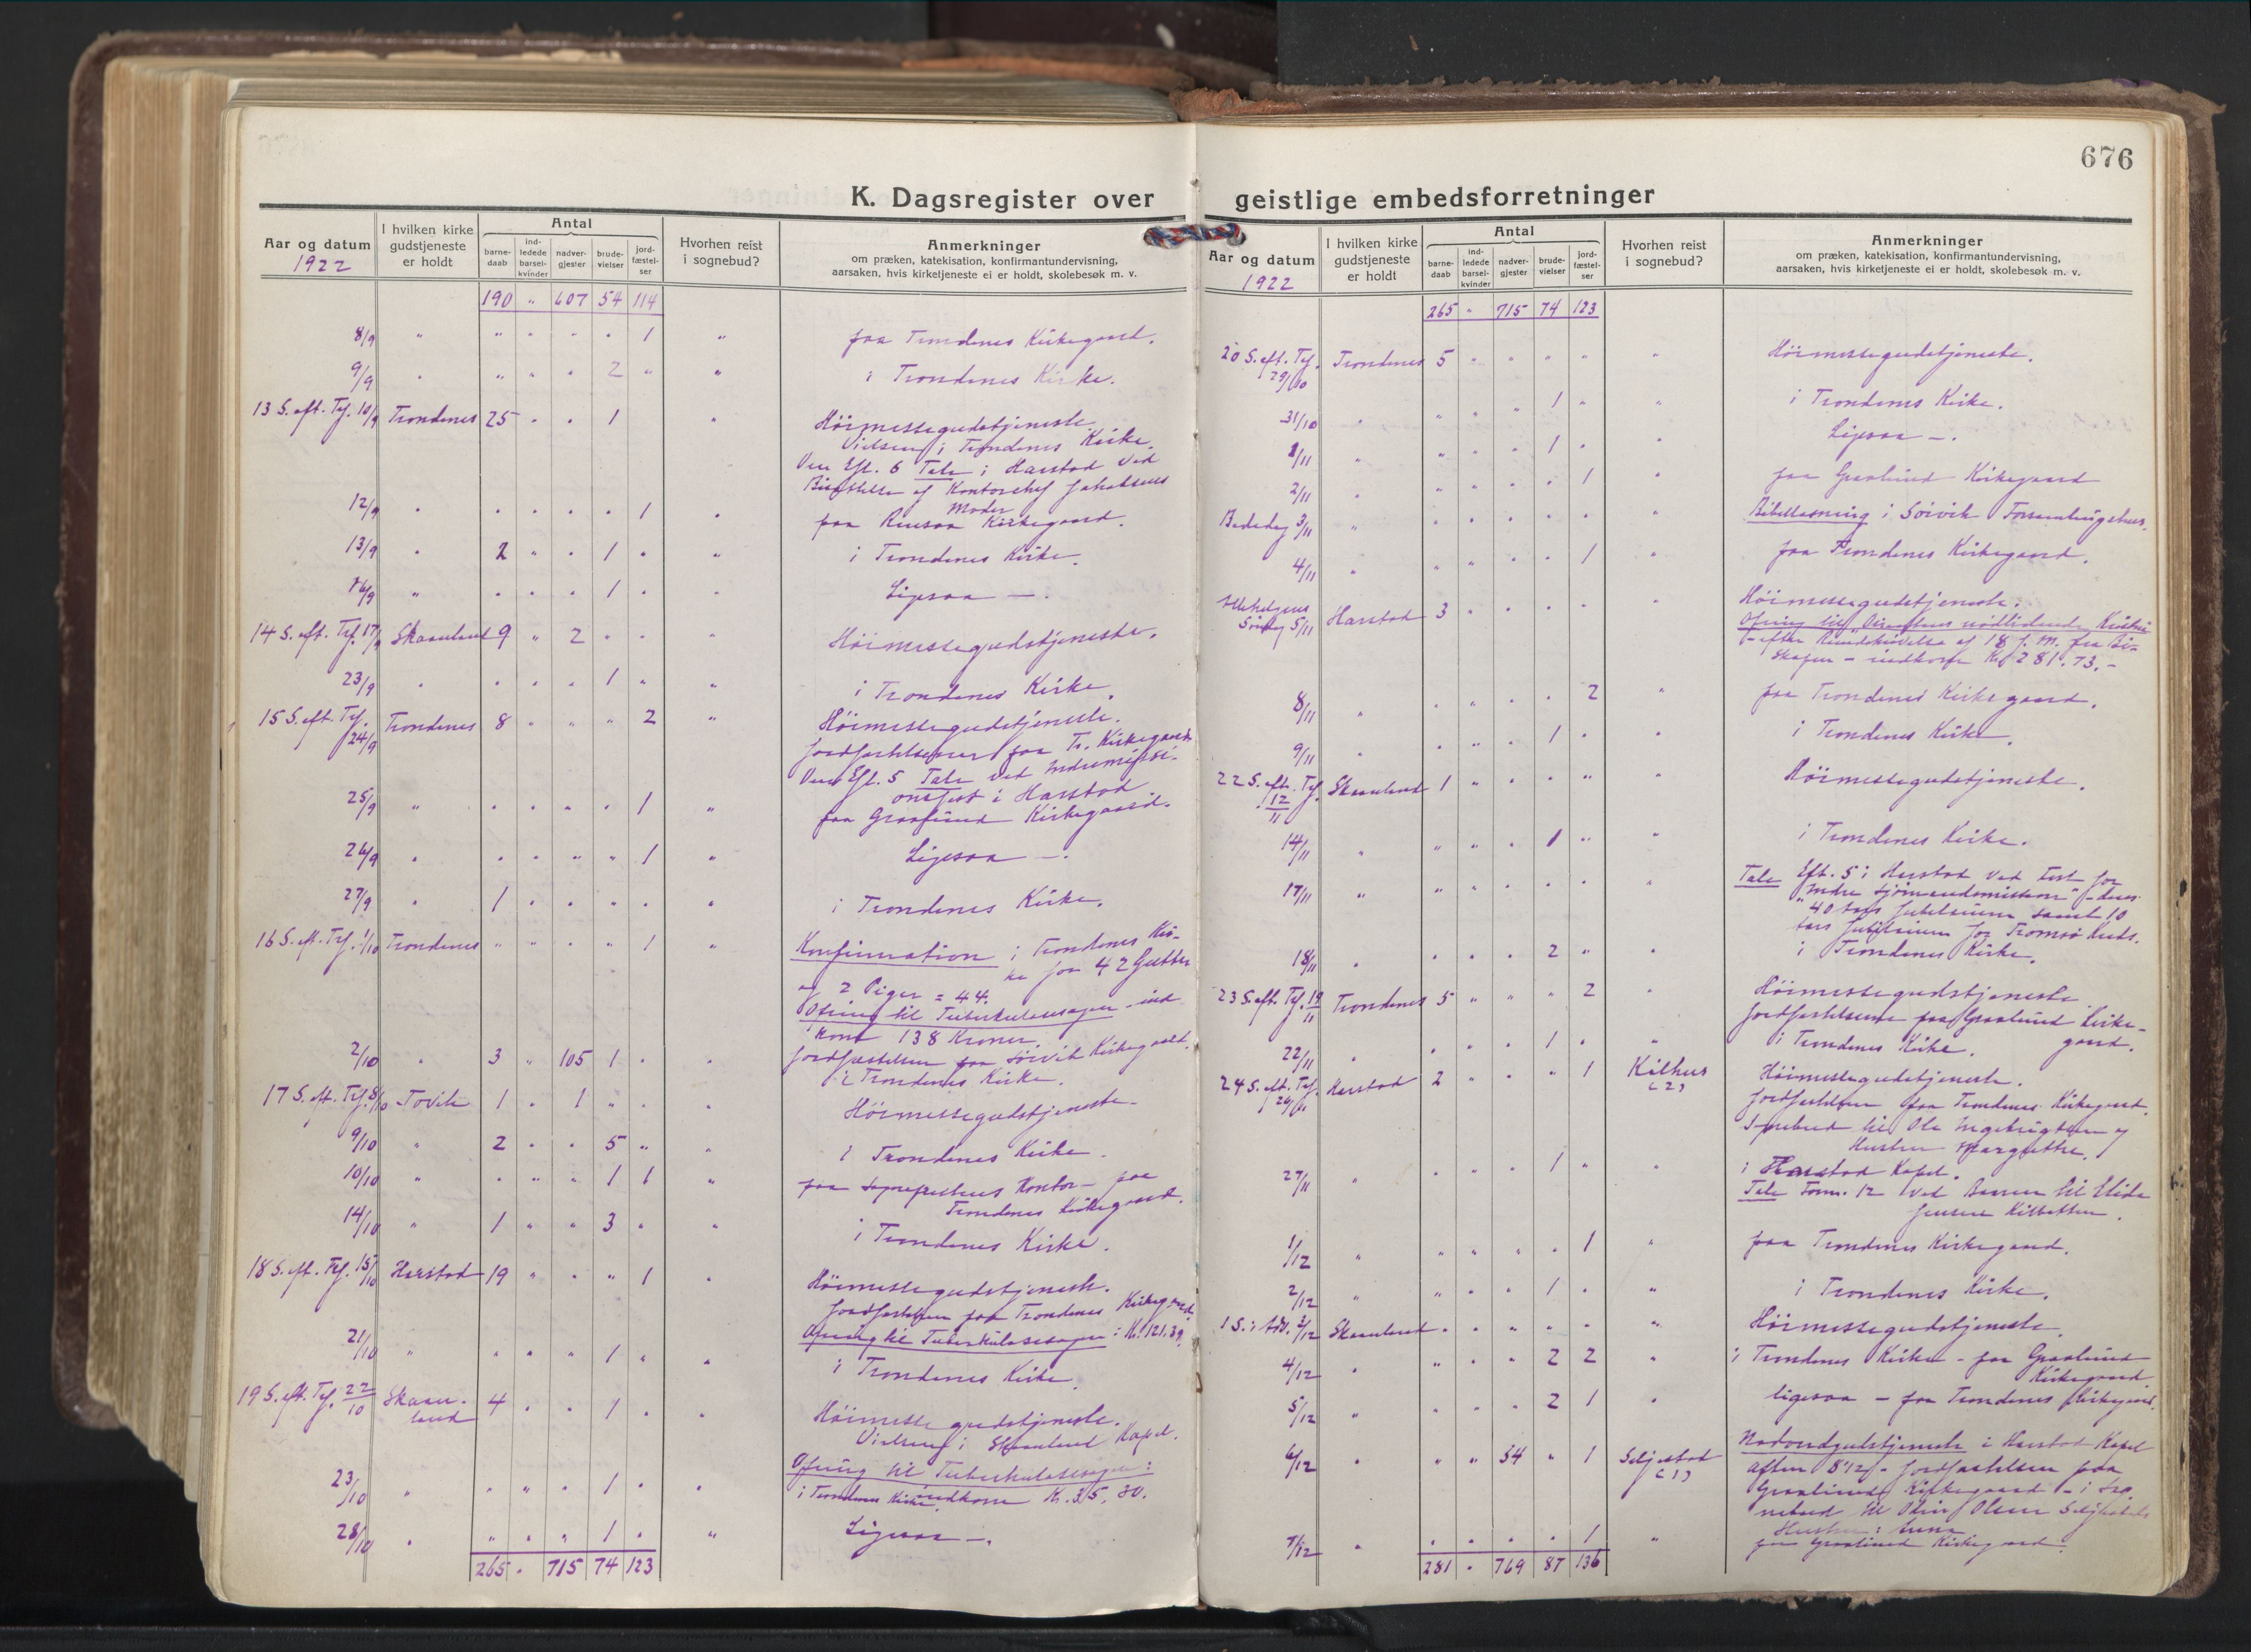 676
K. Dagsregister over geistlige embedsforretninger
Aar og datum
1922
I hvilken kirke gudstjeneste er holdt
Antal
barne-daab
ind-ledede barsel-kvinder
nadver-gjester
brude-vielser
jord-fæstel-ser
Hvorhen reist i sognebud?
Anmerkninger
om præken, katekisation, konfirmantundervisning,
aarsaken, hvis kirketjeneste ei er holdt, skolebesøk m. v.
190 " 607 54 114
8/9 " " " " " 1 " paa Trondenes Kirkegaard.
9/9 " " " " 2 " " i Trondenes Kirke.
13 S. eft. Tref. 10/9 Trondenes 25 " " 1 " Høimessegudstjeneste
Vielsen i Trondenes Kirke.
Eft. 6 Tale i Harstad ved
Bisættelse af Kontorchef Jakobsens
Moder
12/9 " " " " " 1 " paa Rensaa Kirkegaard.
13/9 " 2 " " 1 " " i Trondenes Kirke.
16/9 " " " " 1 " " Ligesaa —.
14 S. eft. Tref. 17/9 Skaanland 9 " 2 " " " Høimessegudstjeneste.
23/9 " " " " 1 " " i Trondenes Kirke.
15 S. eft. Tref. 24/9 Trondenes 8 " " " 2 " Høimessegudstjeneste.
Jordfæstelserne paa Tr. Kirkegaard
Eft. 5 Tale ved Indremissi-
onsfest i Harstad
25/9 " " " " " 1 " paa Graalund Kirkegaard.
26/9 " " " " " 1 " Ligesaa —.
27/9 " 1 " " " " " i Trondenes Kirke.
16 S. eft. Tref. 1/10 Trondenes " " " " 1 " Konfirmation i Trondenes Kir-
ke for 42 Gutter
og 2 Piger = 44.
Ofring til Tuberkulosesagen ind-
kom 138 Kroner.
Jordfæstelsen paa Sørvik Kirkegaard.
2/10 " 3 " 105 1 " " i Trondenes Kirke.
17 S. eft. Tref. 8/10 Tovik 1 " 1 " " " Høimessegudstjeneste
9/10 " 2 " " 5 " " i Trondenes Kirke.
10/10 " " " " 1 1 " paa Sognepræstens Kontor – paa
Trondenes Kirkegaard.
14/10 " 1 " " 3 " " i Trondenes Kirke.
18 S. eft. Tref. 15/10 Harstad 19 " " " 1 " Høimessegudstjeneste.
Jordfæstelsen paa Trondenes Kirkegaard.
Ofring til Tuberkulosesagen: Kr. 121.39.
21/10 " " " " 1 " " i Trondenes Kirke.
19 S. eft. Tref. 22/10 Skaan-
land 4 " " 1 " " Høimessegudstjeneste.
Vielsen i Skaanland Kapel.
Ofring til Tuberkulosesagen:
indkom Kr. 35.30.
23/10 " " " " 1 " " i Trondenes Kirke.
28/10 " " " " 1 " " Ligesaa —.
265 " 715 74 123
Aar og datum
1922
I hvilken kirke gudstjeneste er holdt
Antal
barne-daab
ind-ledede barsel-kvinder
nadver-gjester
brude-vielser
jord-fæstel-ser
Hvorhen reist i sognebud?
Anmerkninger
om præken, katekisation, konfirmantundervisning,
aarsaken, hvis kirketjeneste ei er holdt, skolebesøk m. v.
265 " 715 74 123
20 S. eft. Tref. 29/10 Trondenes 5 " " " " " Høimessegudstjeneste.
31/10 " " " " 1 " " i Trondenes Kirke.
1/11 " " " " 1 " " Ligesaa —.
2/11 " " " " " 1 " paa Graalund Kirkegaard
Bededag 3/11 " " " " " " " Bibellæsning i Sørvik Forsamlingshus.
4/11 " " " " " 1 " paa Trondenes Kirkegaard.
Allehelgens
Søndag 5/11 Harstad 3 " " " " " Høimessegudstjeneste.
Ofring til nødlidende
– efter Rundskrivelse af 18 f. M. fra Bi-
skopen – indkom Kr. 281.73.–
8/11 " " " " " 2 " paa Trondenes Kirkegaard.
9/11 " " " " 1 " " i Trondenes Kirke.
22 S. eft. Tref. 12/11 Skaanland 1 " " " " " Høimessegudstjeneste.
14/11 " " " " 1 " " i Trondenes Kirke.
17/11 " " " " " " " Tale Eft. 5 i Harstad ved Fest for
"Indre Sjømandsmission" – dens
40 aars Jubilæum samt 10
aars Jubilæum for Tromsø Kreds.
18/11 " " " " 2 " " i Trondenes Kirke.
23 S. eft. Tref. 19/11 Trondenes 5 " " " 2 " Høimessegudstjeneste
Jordfæstelserne paa Graalund Kirke-
gaard.
22/11 " " " " 1 " " i Trondenes Kirke.
24 S. eft. Tref. 26/11 Harstad 2 " " " 1 Kilhus
(2) Høimessegudstjeneste.
Jordfæstelsen paa Trondenes Kirkegaard.
Sognebud til Ole Ingebrigtsen og
Hustru Margrethe.
27/11 " " " " 1 " " i Harstad Kapel.
Tale Form. 12 ved Baaren til Elida
Jensen Kilbotten.
1/12 " " " " " 1 " paa Trondenes Kirkegaard.
2/12 " " " " 1 " " i Trondenes Kirke.
1 S. i Adv. 3/12 Skaanland " " " " " " Høimessegudstjeneste.
4/12 " " " " 2 2 " i Trondenes Kirke – paa Graalund
Kirkegaard
5/12 " " " " 2 1 " ligesaa – paa Trondenes Kirkegaard.
6/12 " " " 54 " 1 Seljestad
(1) Nadverdgudstjeneste i Harstad Kapel
aften 8½ – Jordfæstelsen paa
Graalund Kirkegaard – i Sog-
nebud til Olsen Seljestads
Hustru: Anna
7/12 " " " " " 1 " paa Graalund Kirkegaard.
281 " 769 87 136